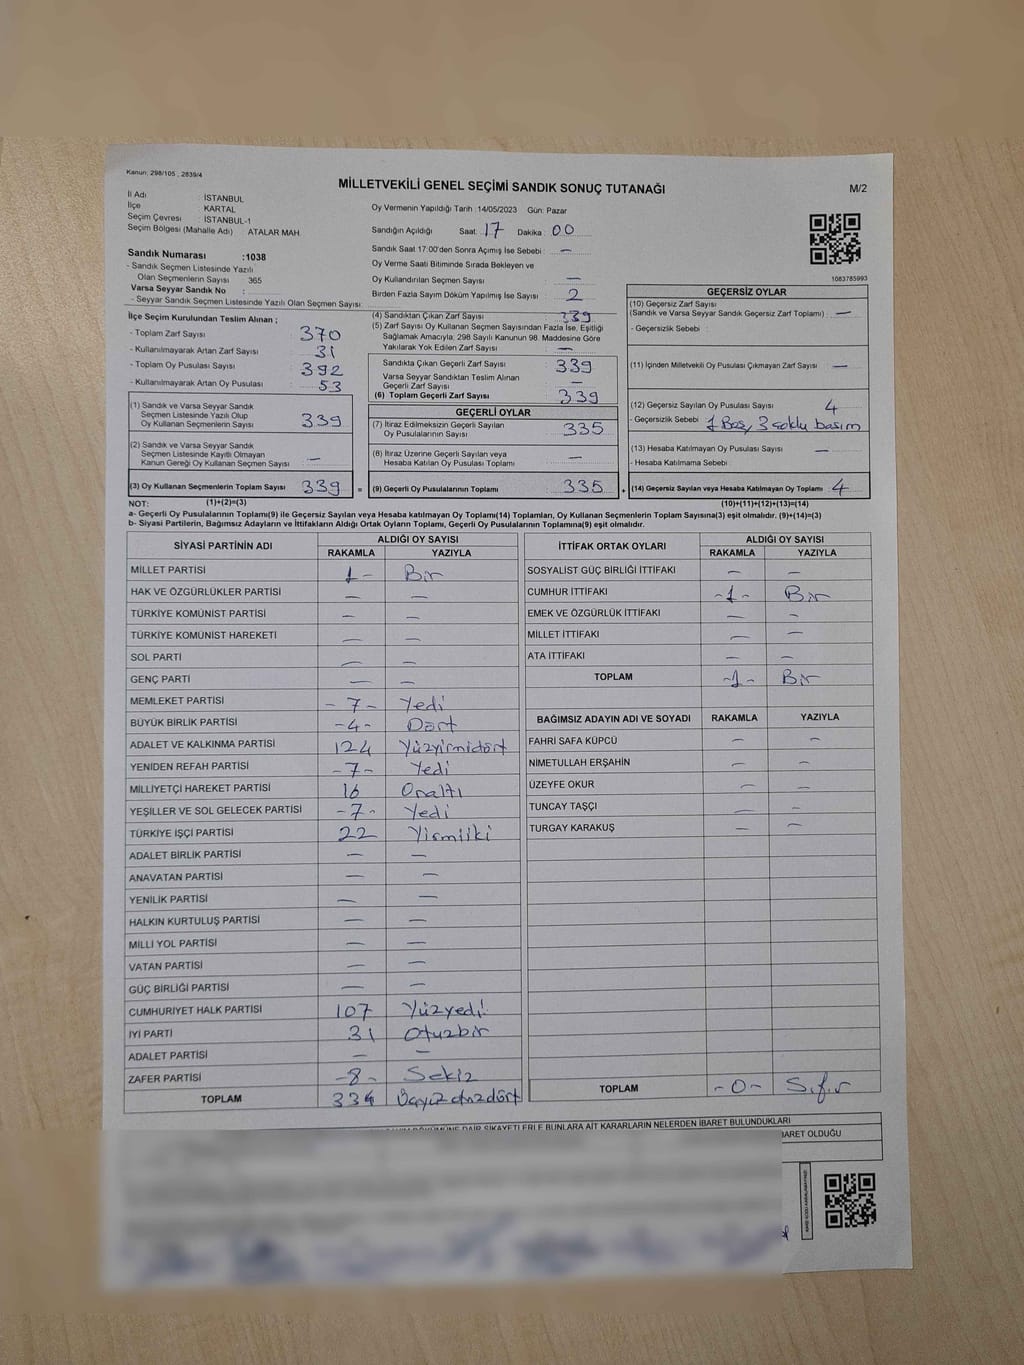 Kanun: 298/105 , 2839/4
MİLLETVEKİLİ GENEL SEÇİMİ SANDIK SONUÇ TUTANAĞI
M/2
İl Adı : İSTANBUL
İlçe : KARTAL
Seçim Çevresi : İSTANBUL-1
Seçim Bölgesi (Mahalle Adı) : ATALAR MAH.
Sandık Numarası :1038
- Sandık Seçmen Listesinde Yazılı
Olan Seçmenlerin Sayısı 365
Varsa Seyyar Sandık No :
- Seyyar Sandık Seçmen Listesinde Yazılı Olan Seçmen Sayısı:
Oy Vermenin Yapıldığı Tarih :14/05/2023 Gün: Pazar
Sandığın Açıldığı Saat: 17 Dakika: 00
Sandık Saat 17:00'den Sonra Açımış İse Sebebi : —
Oy Verme Saati Bitiminde Sırada Bekleyen ve
Oy Kullandırılan Seçmen Sayısı : —
Birden Fazla Sayım Döküm Yapılmış İse Sayısı : 2
1083785993
İlçe Seçim Kurulundan Teslim Alınan ;
- Toplam Zarf Sayısı : 370
- Kullanılmayarak Artan Zarf Sayısı : 31
- Toplam Oy Pusulası Sayısı : 392
- Kullanılmayarak Artan Oy Pusulası : 53
(1) Sandık ve Varsa Seyyar Sandık
Seçmen Listesinde Yazılı Olup
Oy Kullanan Seçmenlerin Sayısı : 339
(2) Sandık ve Varsa Seyyar Sandık
Seçmen Listesinde Kayıtlı Olmayan
Kanun Gereği Oy Kullanan Seçmen Sayısı : —
(3) Oy Kullanan Seçmenlerin Toplam Sayısı : 339 =
(4) Sandıktan Çıkan Zarf Sayısı : 339
(5) Zarf Sayısı Oy Kullanan Seçmen Sayısından Fazla İse, Eşitliği
Sağlamak Amacıyla, 298 Sayılı Kanunun 98. Maddesine Göre
Yakılarak Yok Edilen Zarf Sayısı : —
Sandıkta Çıkan Geçerli Zarf Sayısı : 339
Varsa Seyyar Sandıktan Teslim Alınan
Geçerli Zarf Sayısı : —
(6) Toplam Geçerli Zarf Sayısı : 339
GEÇERLİ OYLAR
(7) İtiraz Edilmeksizin Geçerli Sayılan
Oy Pusulalarının Sayısı : 335
(8) İtiraz Üzerine Geçerli Sayılan veya
Hesaba Katılan Oy Pusulası Toplamı : —
(9) Geçerli Oy Pusulalarının Toplamı : 335 +
GEÇERSİZ OYLAR
(10) Geçersiz Zarf Sayısı
(Sandık ve Varsa Seyyar Sandık Geçersiz Zarf Toplamı) : —
- Geçersizlik Sebebi :
(11) İçinden Milletvekili Oy Pusulası Çıkmayan Zarf Sayısı : —
(12) Geçersiz Sayılan Oy Pusulası Sayısı : 4
- Geçersizlik Sebebi : 1 Boş, 3 çoklu basım
(13) Hesaba Katılmayan Oy Pusulası Sayısı : —
- Hesaba Katılmama Sebebi :
(14) Geçersiz Sayılan veya Hesaba Katılmayan Oy Toplamı : 4
NOT: (1)+(2)=(3) (10)+(11)+(12)+(13)=(14)
a- Geçerli Oy Pusulalarının Toplamı(9) ile Geçersiz Sayılan veya Hesaba Katılmayan Oy Toplamı(14) Toplamları, Oy Kullanan Seçmenlerin Toplam Sayısına(3) eşit olmalıdır. (9)+(14)=(3)
b- Siyasi Partilerin, Bağımsız Adayların ve İttifakların Aldığı Ortak Oyların Toplamı, Geçerli Oy Pusulalarının Toplamına(9) eşit olmalıdır.
SİYASİ PARTİNİN ADI ALDIĞI OY SAYISI
RAKAMLA YAZIYLA
MİLLET PARTİSİ 1- Bir
HAK VE ÖZGÜRLÜKLER PARTİSİ — —
TÜRKİYE KOMÜNİST PARTİSİ — —
TÜRKİYE KOMÜNİST HAREKETİ — —
SOL PARTİ — —
GENÇ PARTİ — —
MEMLEKET PARTİSİ -7- Yedi
BÜYÜK BİRLİK PARTİSİ -4- Dört
ADALET VE KALKINMA PARTİSİ 124 Yüzyirmidört
YENİDEN REFAH PARTİSİ -7- Yedi
MİLLİYETÇİ HAREKET PARTİSİ 16 Onaltı
YEŞİLLER VE SOL GELECEK PARTİSİ -7- Yedi
TÜRKİYE İŞÇİ PARTİSİ 22 Yirmiiki
ADALET BİRLİK PARTİSİ — —
ANAVATAN PARTİSİ — —
YENİLİK PARTİSİ — —
HALKIN KURTULUŞ PARTİSİ — —
MİLLİ YOL PARTİSİ — —
VATAN PARTİSİ — —
GÜÇ BİRLİĞİ PARTİSİ — —
CUMHURİYET HALK PARTİSİ 107 Yüzyedi
İYİ PARTİ 31 Otuzbir
ADALET PARTİSİ — —
ZAFER PARTİSİ -8- Sekiz
TOPLAM 334 Üçyüzotuzdört
İTTİFAK ORTAK OYLARI ALDIĞI OY SAYISI
RAKAMLA YAZIYLA
SOSYALİST GÜÇ BİRLİĞİ İTTİFAKI — —
CUMHUR İTTİFAKI -1- Bir
EMEK VE ÖZGÜRLÜK İTTİFAKI — —
MİLLET İTTİFAKI — —
ATA İTTİFAKI — —
TOPLAM -1- Bir
BAĞIMSIZ ADAYIN ADI VE SOYADI RAKAMLA YAZIYLA
FAHRİ SAFA KÜPCÜ — —
NİMETULLAH ERŞAHİN — —
ÜZEYFE OKUR — —
TUNCAY TAŞÇI — —
TURGAY KARAKUŞ — —
TOPLAM -0- Sıfır
DÖKÜMÜNE DAİR ŞİKAYETLERLE BUNLARA AİT KARARLARIN NELERDEN İBARET BULUNDUKLARI
İBARET OLDUĞU